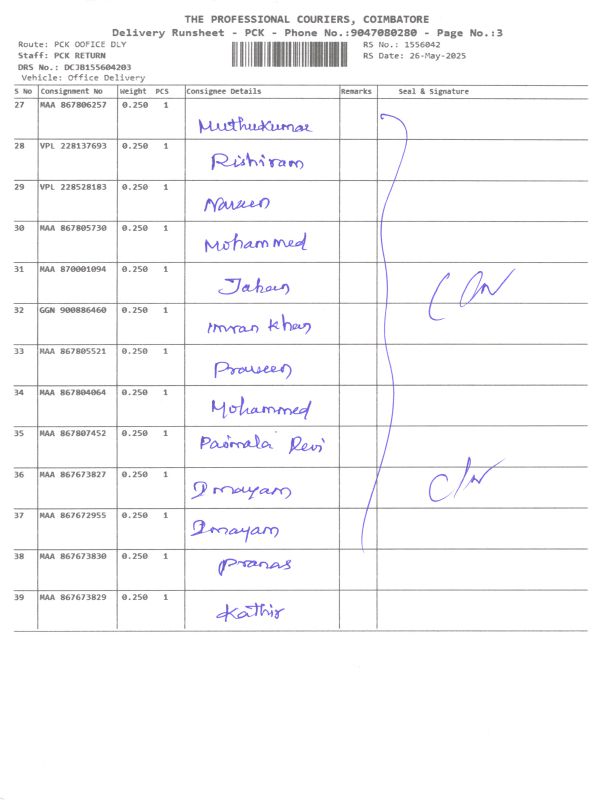 THE PROFESSIONAL COURIERS, COIMBATORE
Delivery Runsheet - PCK - Phone No.:9047080280 - Page No.:3
Route: PCK OOFICE DLY RS No.: 1556042
Staff: PCK RETURN RS Date: 26-May-2025
DRS No.: DCJB155604203
Vehicle: Office Delivery
S No Consignment No Weight PCS Consignee Details Remarks Seal & Signature
27 MAA 867806257 0.250 1
Muthukumar
28 VPL 228137693 0.250 1
Rishiram
29 VPL 228528183 0.250 1
Naraen
30 MAA 867805730 0.250 1
Mohammed
31 MAA 870001094 0.250 1
Jahan
32 GGN 900886460 0.250 1
imran Khan
33 MAA 867805521 0.250 1
Praveen
34 MAA 867804064 0.250 1
Mohammed
35 MAA 867807452 0.250 1
Devi
36 MAA 867673827 0.250 1
Imayam
37 MAA 867672955 0.250 1
Imayam
38 MAA 867673830 0.250 1
Pranas
39 MAA 867673829 0.250 1
Kathir